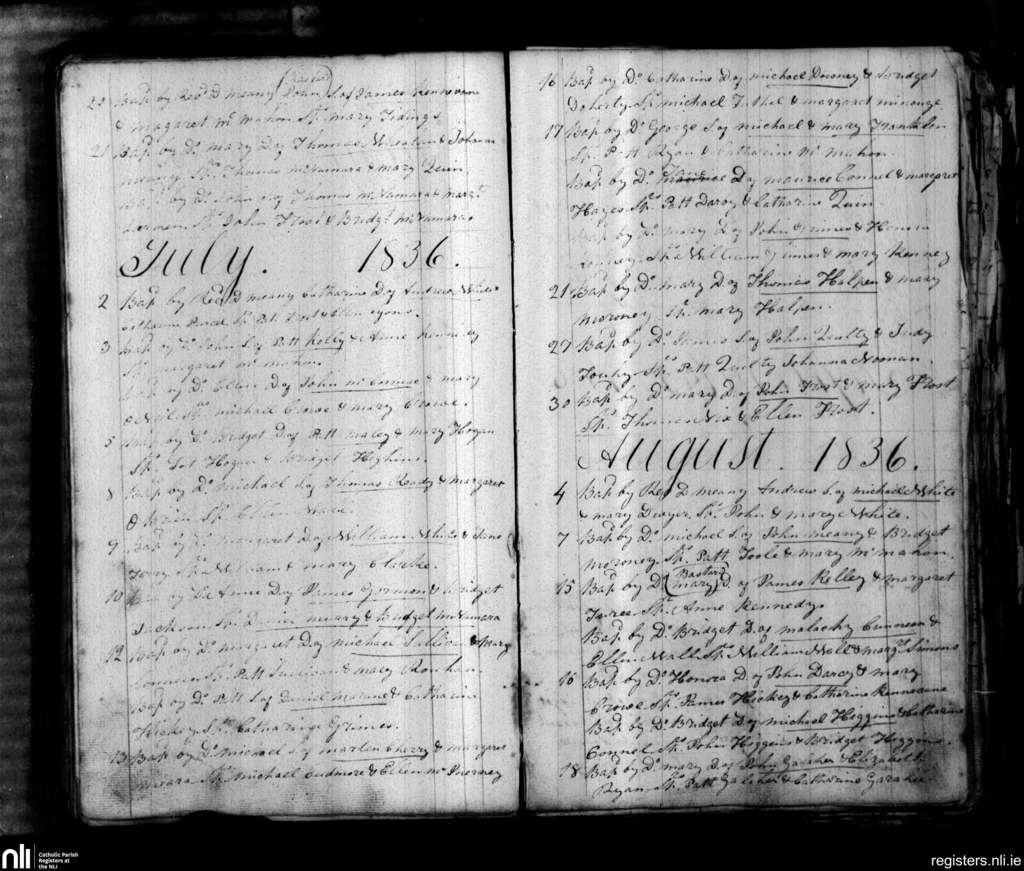 Bastard
20 Bapd by Revd D meany John S. of James Kennivane
& magaret mc mahon Sp. mary
21 Bapd by Do mary D of Thomas Whealon & Johanna
meany Sps Thomas mcNamara & mary Quin
Bapd by Do John S of Thomas mcNamara & margt
Sps John Frost & Bridgt mcNamara
July. 1836.
2 Bapd by Revd D meany Catharine D of Andrew White
Catharine Sps Patt Frost & Ellen Lyons.
3 Bapd by Do John S of Patt Kelly & Anne Kennedy
Sps margaret mc mahon.
Bapd by Do Ellen D of John mc & mary
Neil Sps michael Crowe & mary Crowe.
5 Bapd by Do Bridget D of Patt maley & mary Hogan
Sps Hogan & Bridget Hickins.
8 Bapd by Do michael S of Thomas Ready & margaret
O Brien Sps Ellen
9 Bapd by Do margaret D of William White & Jane
Sps William & mary Clarke.
10 Bapd by Do Anne D of James Gorman & Bridget
Jackson Sps Daniel meany & Bridget mcNamara
12 Bapd by Do margaret D of michael & Mary
Sps Patt & mary Ronhan.
Bapd by Do Patt S of Daniel & Catharine
Hickey Sps Catharine Grimes.
13 Bapd by Do michael S of martin Cherry & margaret
meara Sps michael Cudmore & Ellen mc Inerney
16 Bapd by Do Catharine D of michael Downey & Bridget
Doherty Sps michael & margaret minouge
17 Bapd by Do George S of michael & mary Franklin
Sps Patt Ryan & Catharine mc mahon.
Bapd by Do D of maurice Connel & margaret
Hayes Sps Patt Darcy & Catharine Quin
Bapd by Do mary D of John Grimes & Honora
Sps William Grimes & mary Kenney
21 Bapd by Do mary D of Thomas Halpen & mary
moroney Sps mary Halpen.
27 Bapd by Do James S of John Quilty & Judy
Touhy Sps Patt Quilty Johanna Noonan.
30 Bapd by Do mary D of John Frost & mary Frost
Sps Thomas Nix & Ellen Frost.
August. 1836.
4 Bapd by Rev D meany Andrew S of michael White
& mary Dwyer Sps John & mary White.
7 Bapd by Do michael S of John meany & Bridget
moroney Sps Patt Toole & mary mc mahon.
15 Bapd by Do (Bastard mary) D. of James Kelley & margaret
Taree Sps Anne Kennedy.
Bapd by Do Bridget D. of malachy Cunneen &
Ellen Wall Sps William Wall & margt Simons
16 Bapd by Do Honora D of John Darcy & mary
Crowe Sps James Hickey & Catharine Kennedane
Bapd by Do Bridget D of michael Higgins & Catharine
Connel Sps John Higgins & Bridget Higgins.
18 Bapd by Do mary D of John Garaher & Elizabeth
Ryan Sps Patt Garaher & Catharine Garaher
nli Catholic Parish
Registers at
the NLI
registers.nli.ie